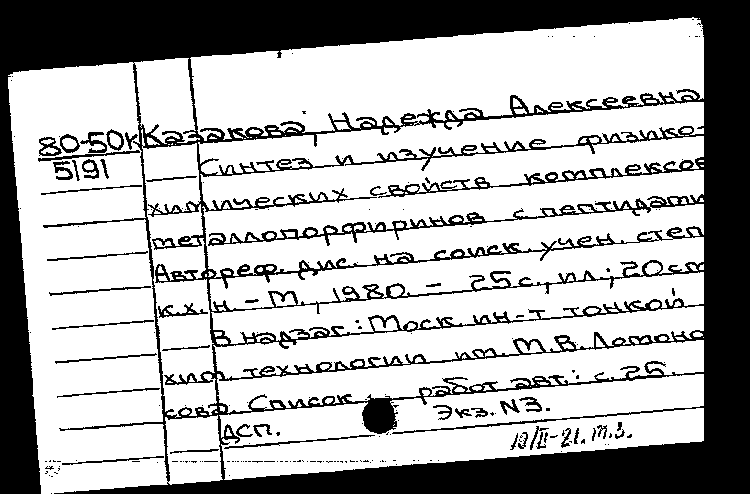 80-50к Казакова, Надежда Алексеевна
5191 Синтез и изучение физико-
химических свойств комплексов
металлопорфиринов с пептидами
Автореф. дис. на соиск. учен. степ
к.х.н. - М., 1980. - 25с., ил.; 20см
В надзаг.: Моск. ин-т тонкой
хим. технологии им. М.В. Ломоно
сова. Список работ авт.: с. 25.
ДСП. Экз. N3.
12/II-81. М.З.